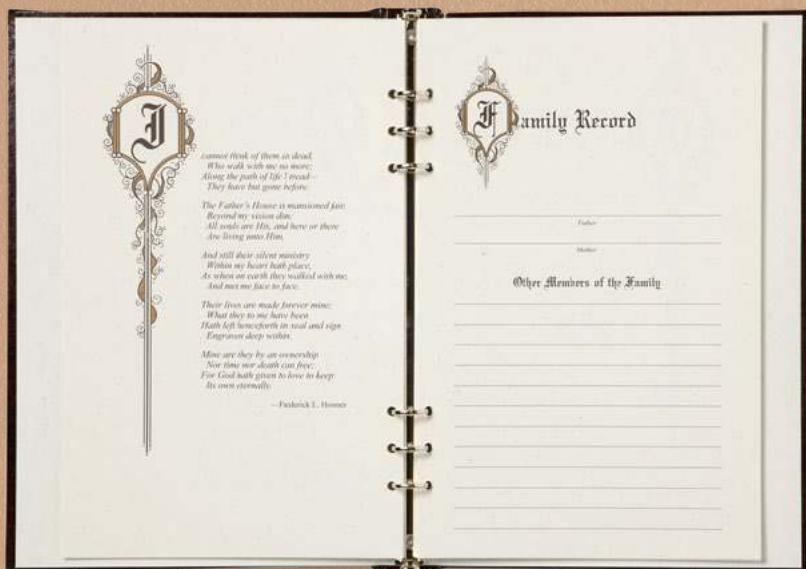 I
cannot think of them as dead,
Who walk with me no more;
Along the path of life I tread—
They have but gone before.
The Father's House is mansioned fair,
Beyond my vision dim;
All souls are His, and here or there
Are living unto Him.
And still their silent ministry
Within my heart hath place,
As when on earth they walked with me,
And met me face to face.
Their lives are made forever mine;
What they to me have been
Hath left henceforth its seal and sign
Engraven deep within.
Mine are they by an ownership
Nor time nor death can free;
For God hath given to love to keep
Its own eternally.
—Frederick L. Hosmer
Family Record
Father
Mother
Other Members of the Family